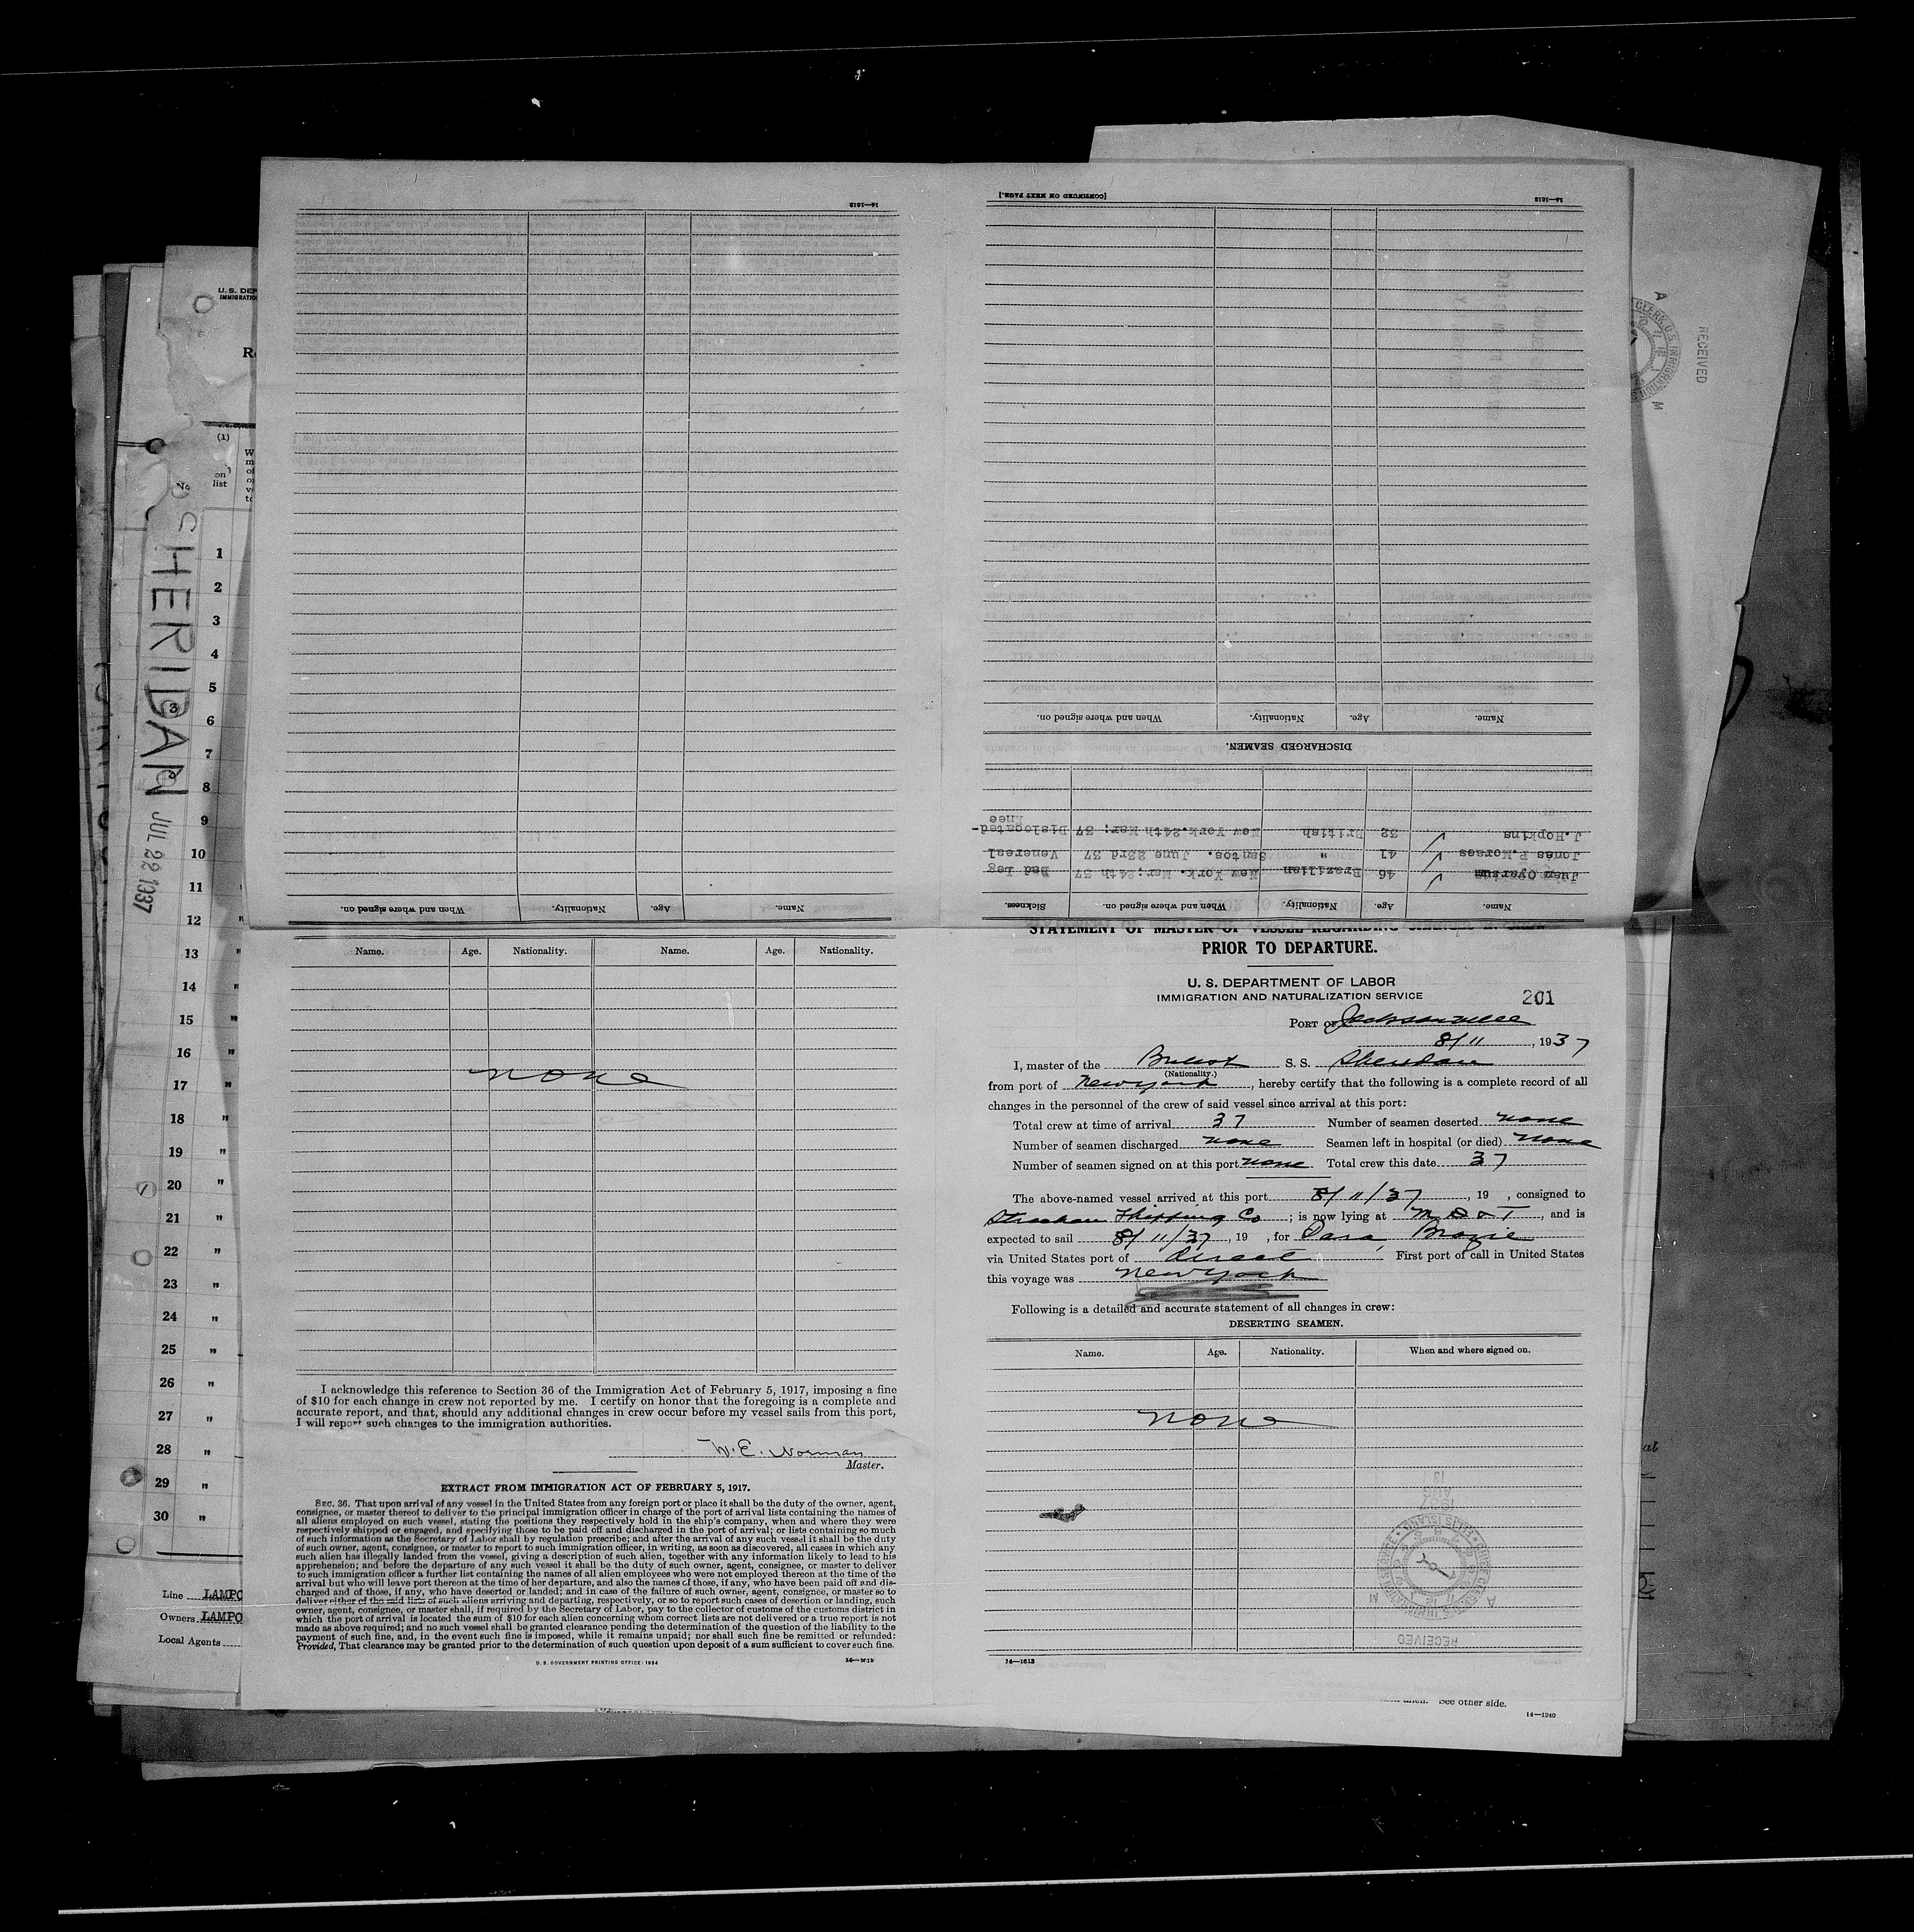 14—1613
[CONTINUED ON NEXT PAGE.]
14—1613
Name.
Age.
Nationality.
When and where signed on.
DISCHARGED SEAMEN.
Name. Age. Nationality. When and where signed on. Sickness.
Juan Oyarzun 46 Brazilian New York. Mar; 24th 37 Bad Leg
Jonas P. Moraes 41 " Santos. June 23rd 37 Venereal
J. Hopkins 32 British New York. 24th Mar; 37 Dislocated-
Knee
Name. Age. Nationality. When and where signed on.
U. S. DEP
IMMIGRATIO
(1)
No on list
SHERIDAN JUL 22 1937
1
2
3
4
5
3
6
7
8
9
10
11
12 "
13 "
14 "
15 "
16 "
17 "
18 "
19 "
20 "
21 "
22 "
23 "
24 "
25 "
26 "
27 "
28 "
29 "
30 "
Line LAMPO
Owners LAMPO
Local Agents
Name. Age. Nationality. Name. Age. Nationality.
none
I acknowledge this reference to Section 36 of the Immigration Act of February 5, 1917, imposing a fine
of $10 for each change in crew not reported by me. I certify on honor that the foregoing is a complete and
accurate report, and that, should any additional changes in crew occur before my vessel sails from this port,
I will report such changes to the immigration authorities.
W. E. Norman
Master.
EXTRACT FROM IMMIGRATION ACT OF FEBRUARY 5, 1917.
SEC. 36. That upon arrival of any vessel in the United States from any foreign port or place it shall be the duty of the owner, agent,
consignee, or master thereof to deliver to the principal immigration officer in charge of the port of arrival lists containing the names of
all aliens employed on such vessel, stating the positions they respectively hold in the ship's company, when and where they were
respectively shipped or engaged, and specifying those to be paid off and discharged in the port of arrival; or lists containing so much
of such information as the Secretary of Labor shall by regulation prescribe; and after the arrival of any such vessel it shall be the duty
of such owner, agent, consignee, or master to report to such immigration officer, in writing, as soon as discovered, all cases in which any
such alien has illegally landed from the vessel, giving a description of such alien, together with any information likely to lead to his
apprehension; and before the departure of any such vessel it shall be the duty of such owner, agent, consignee, or master to deliver
to such immigration officer a further list containing the names of all alien employees who were not employed thereon at the time of the
arrival but who will leave port thereon at the time of her departure, and also the names of those, if any, who have been paid off and dis-
charged and of those, if any, who have deserted or landed; and in case of the failure of such owner, agent, consignee, or master so to
deliver either of the said lists of such aliens arriving and departing, respectively, or so to report such cases of desertion or landing, such
owner, agent, consignee, or master shall, if required by the Secretary of Labor, pay to the collector of customs of the customs district in
which the port of arrival is located the sum of $10 for each alien concerning whom correct lists are not delivered or a true report is not
made as above required; and no such vessel shall be granted clearance pending the determination of the question of the liability to the
payment of such fine, and, in the event such fine is imposed, while it remains unpaid; nor shall such fine be remitted or refunded:
Provided, That clearance may be granted prior to the determination of such question upon deposit of a sum sufficient to cover such fine.
U. S. GOVERNMENT PRINTING OFFICE: 1934 14—1613
STATEMENT OF MASTER OF VESSEL REGARDING CHANGES IN CREW
PRIOR TO DEPARTURE.
U. S. DEPARTMENT OF LABOR
IMMIGRATION AND NATURALIZATION SERVICE
201
PORT OF Jacksonville
8/11, 1937
I, master of the British S. S. Sheridan
(Nationality.)
from port of New York, hereby certify that the following is a complete record of all
changes in the personnel of the crew of said vessel since arrival at this port:
Total crew at time of arrival 37 Number of seamen deserted none
Number of seamen discharged none Seamen left in hospital (or died) none
Number of seamen signed on at this port none Total crew this date 37
The above-named vessel arrived at this port 8/11/37, 19 , consigned to
Strachan Shipping Co; is now lying at M D & T, and is
expected to sail 8/11/37, 19 , for Para, Brazil
via United States port of direct. First port of call in United States
this voyage was New York
Following is a detailed and accurate statement of all changes in crew:
DESERTING SEAMEN.
Name. Age. Nationality. When and where signed on.
none
13
AUG
1937
ELLIS ISLAND
RECEIVED
A M
14—1613
See other side.
14—1240
RECEIVED
CLERK U.S. IMMIGRATION
A M